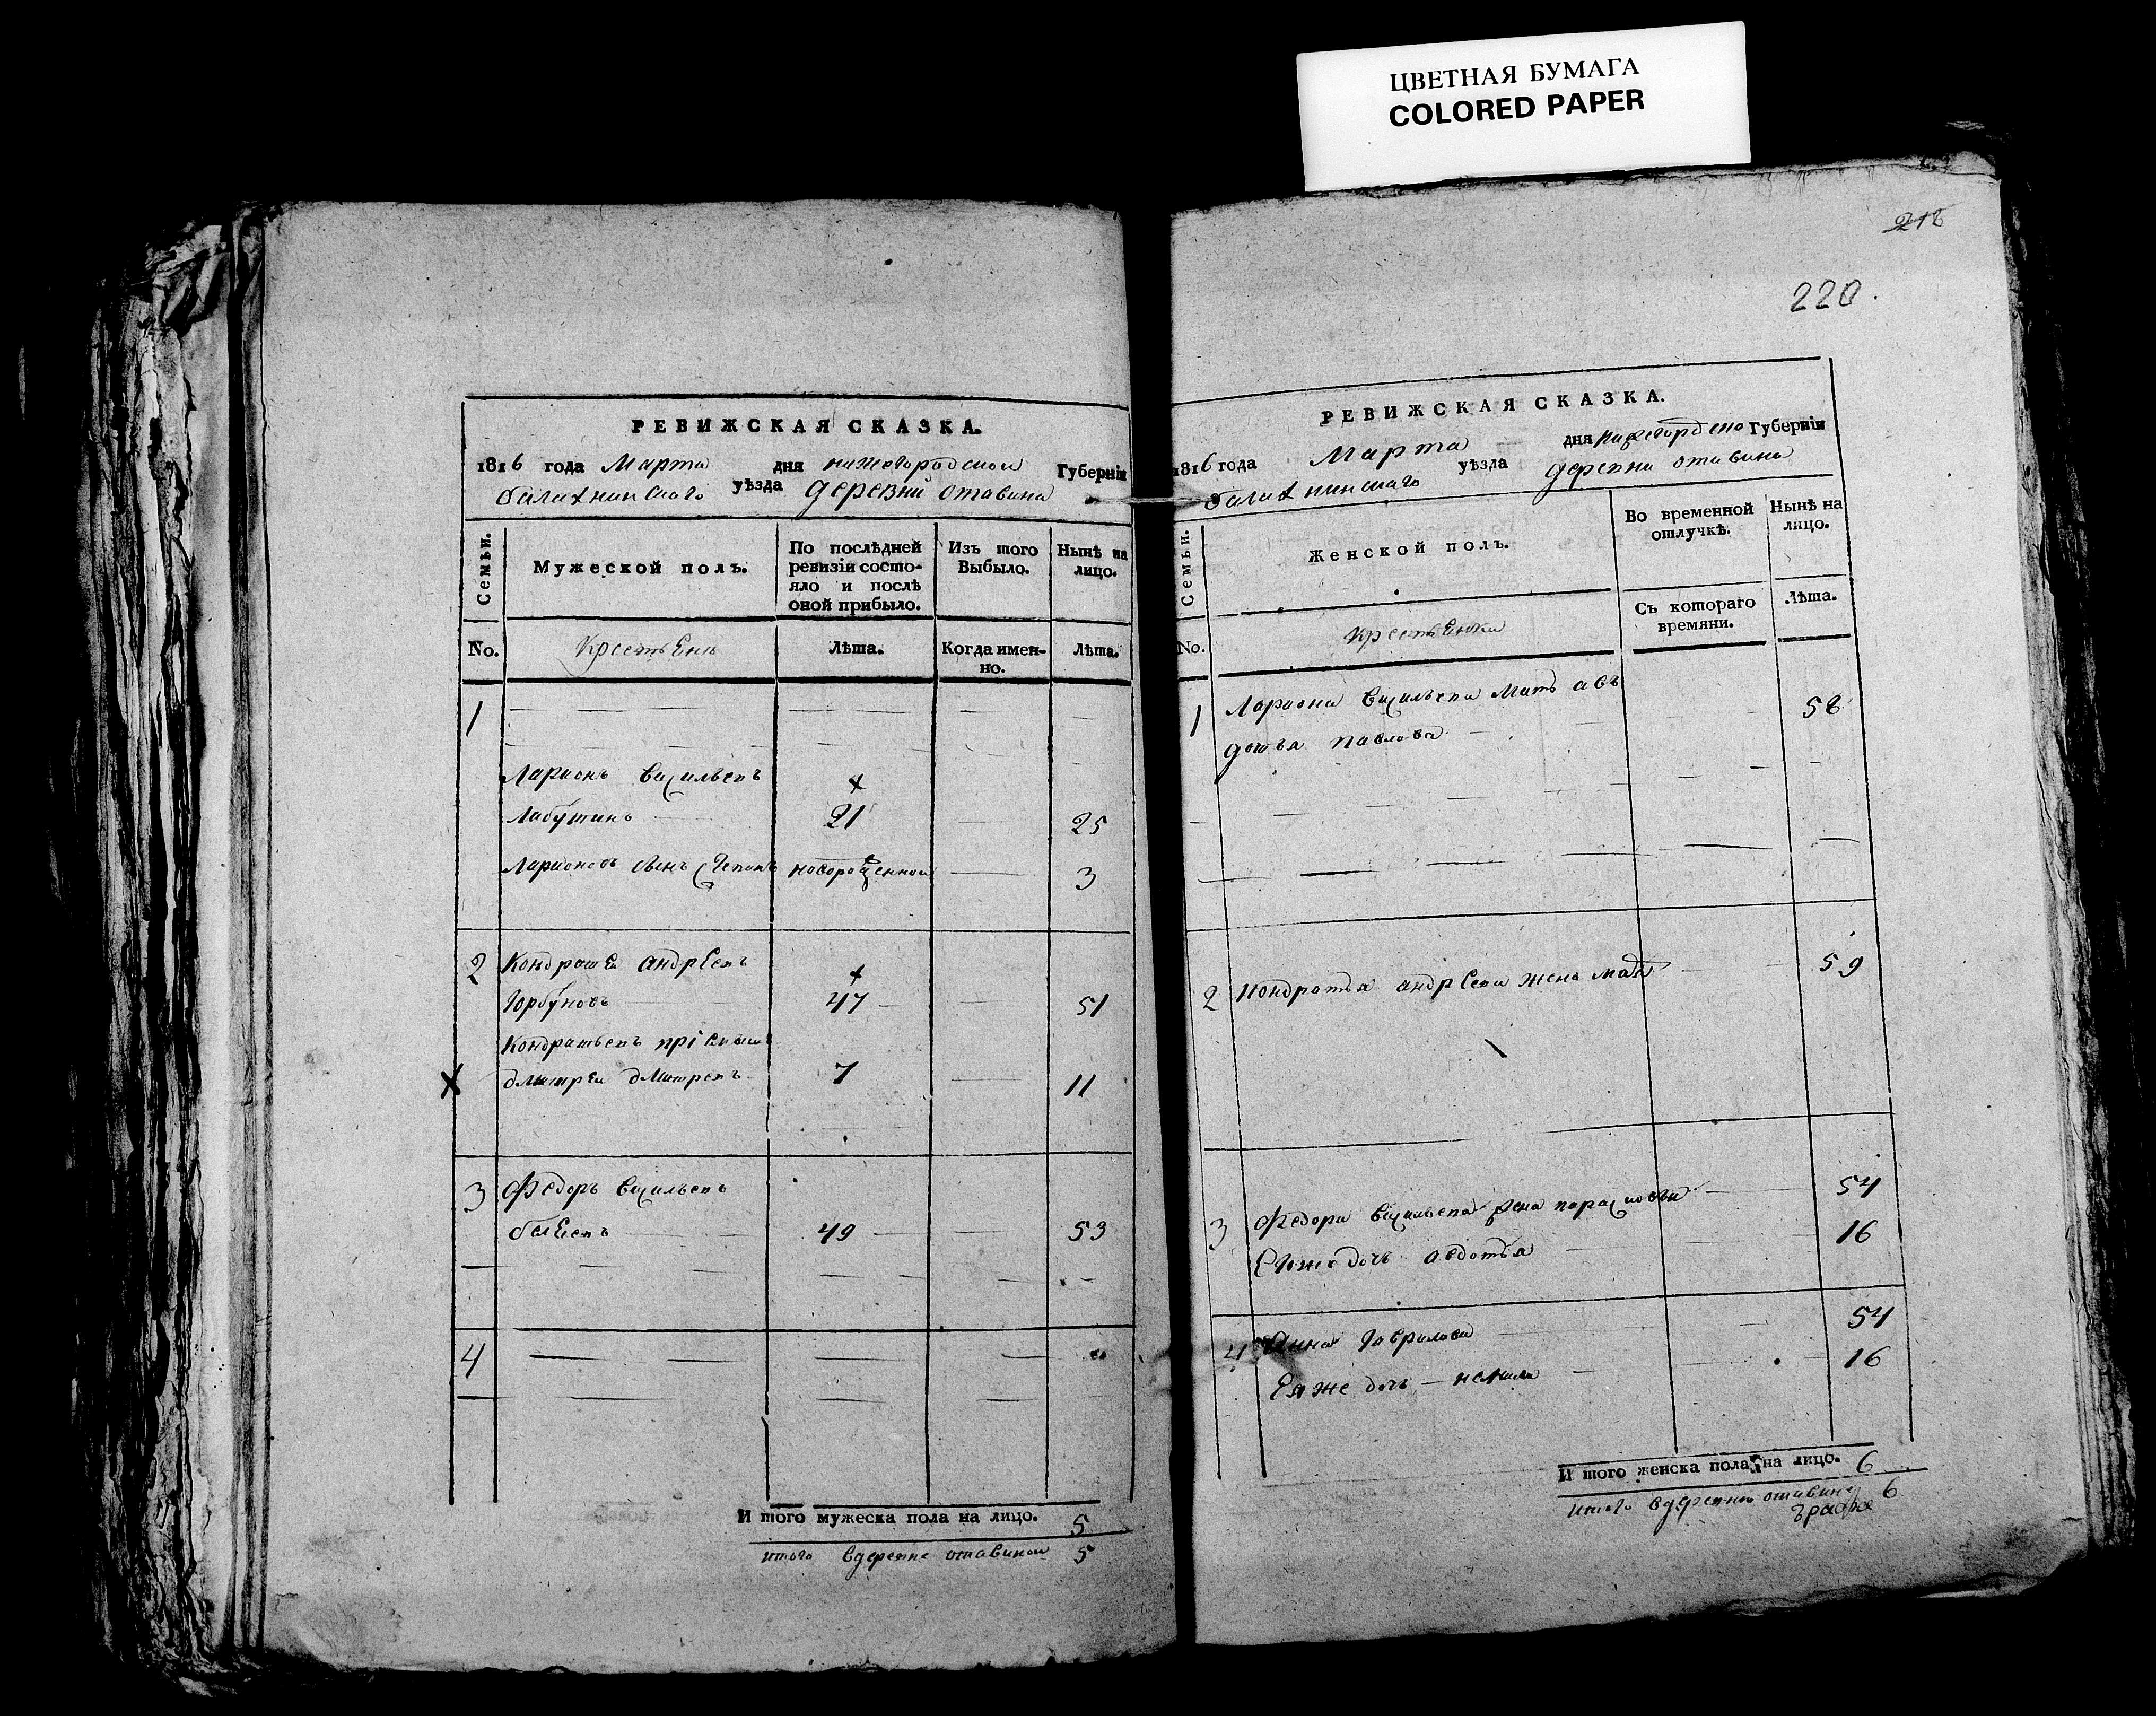 ЦВЕТНАЯ БУМАГА
COLORED PAPER
218
220.
РЕВИЖСКАЯ СКАЗКА.
1816 года Марта дня нижегородской Губерніи
балахнинскаго уѣзда деревни отавина
Семьи.
Мужеской полъ.
По послѣдней ревизіи состо-
яло и послѣ
оной прибыло.
Изъ того
Выбыло.
Нынѣ на
лицо.
No.
Крестьенъ
Лѣта.
Когда имен-
но.
Лѣта.
1
Ларионъ Васильевъ
Лабутинъ 21 25
Ларионовъ сынъ Степанъ новорожденной 3
2 Кондратей андреевъ
Горбуновъ 47 51
Кондратьевъ пріемышъ
дмитрей дмитревъ 7 11
3 Федоръ Васильевъ
49 53
4
И того мужеска пола на лицо. 5
итого вдеревне отавиной 5
РЕВИЖСКАЯ СКАЗКА.
1816 года Марта дня Губерніи
балахнинскаго уѣзда деревни отавина
Семьи.
Женской полъ.
Во временной
отлучкѣ.
Нынѣ на
лицо.
No.
крестьенки
Съ котораго
времяни.
Лѣта.
1 Лариона Васильева Мать ав
дотья павлова 58
2 Кондратья андреева жена 59
3 Федора Васильева жена парасковья 54
Ево же дочь авдотья 16
4 Анна Гаврилова 54
Ея же дочь 16
И того женска пола на лицо. 6
итого вдеревни отавиной 6